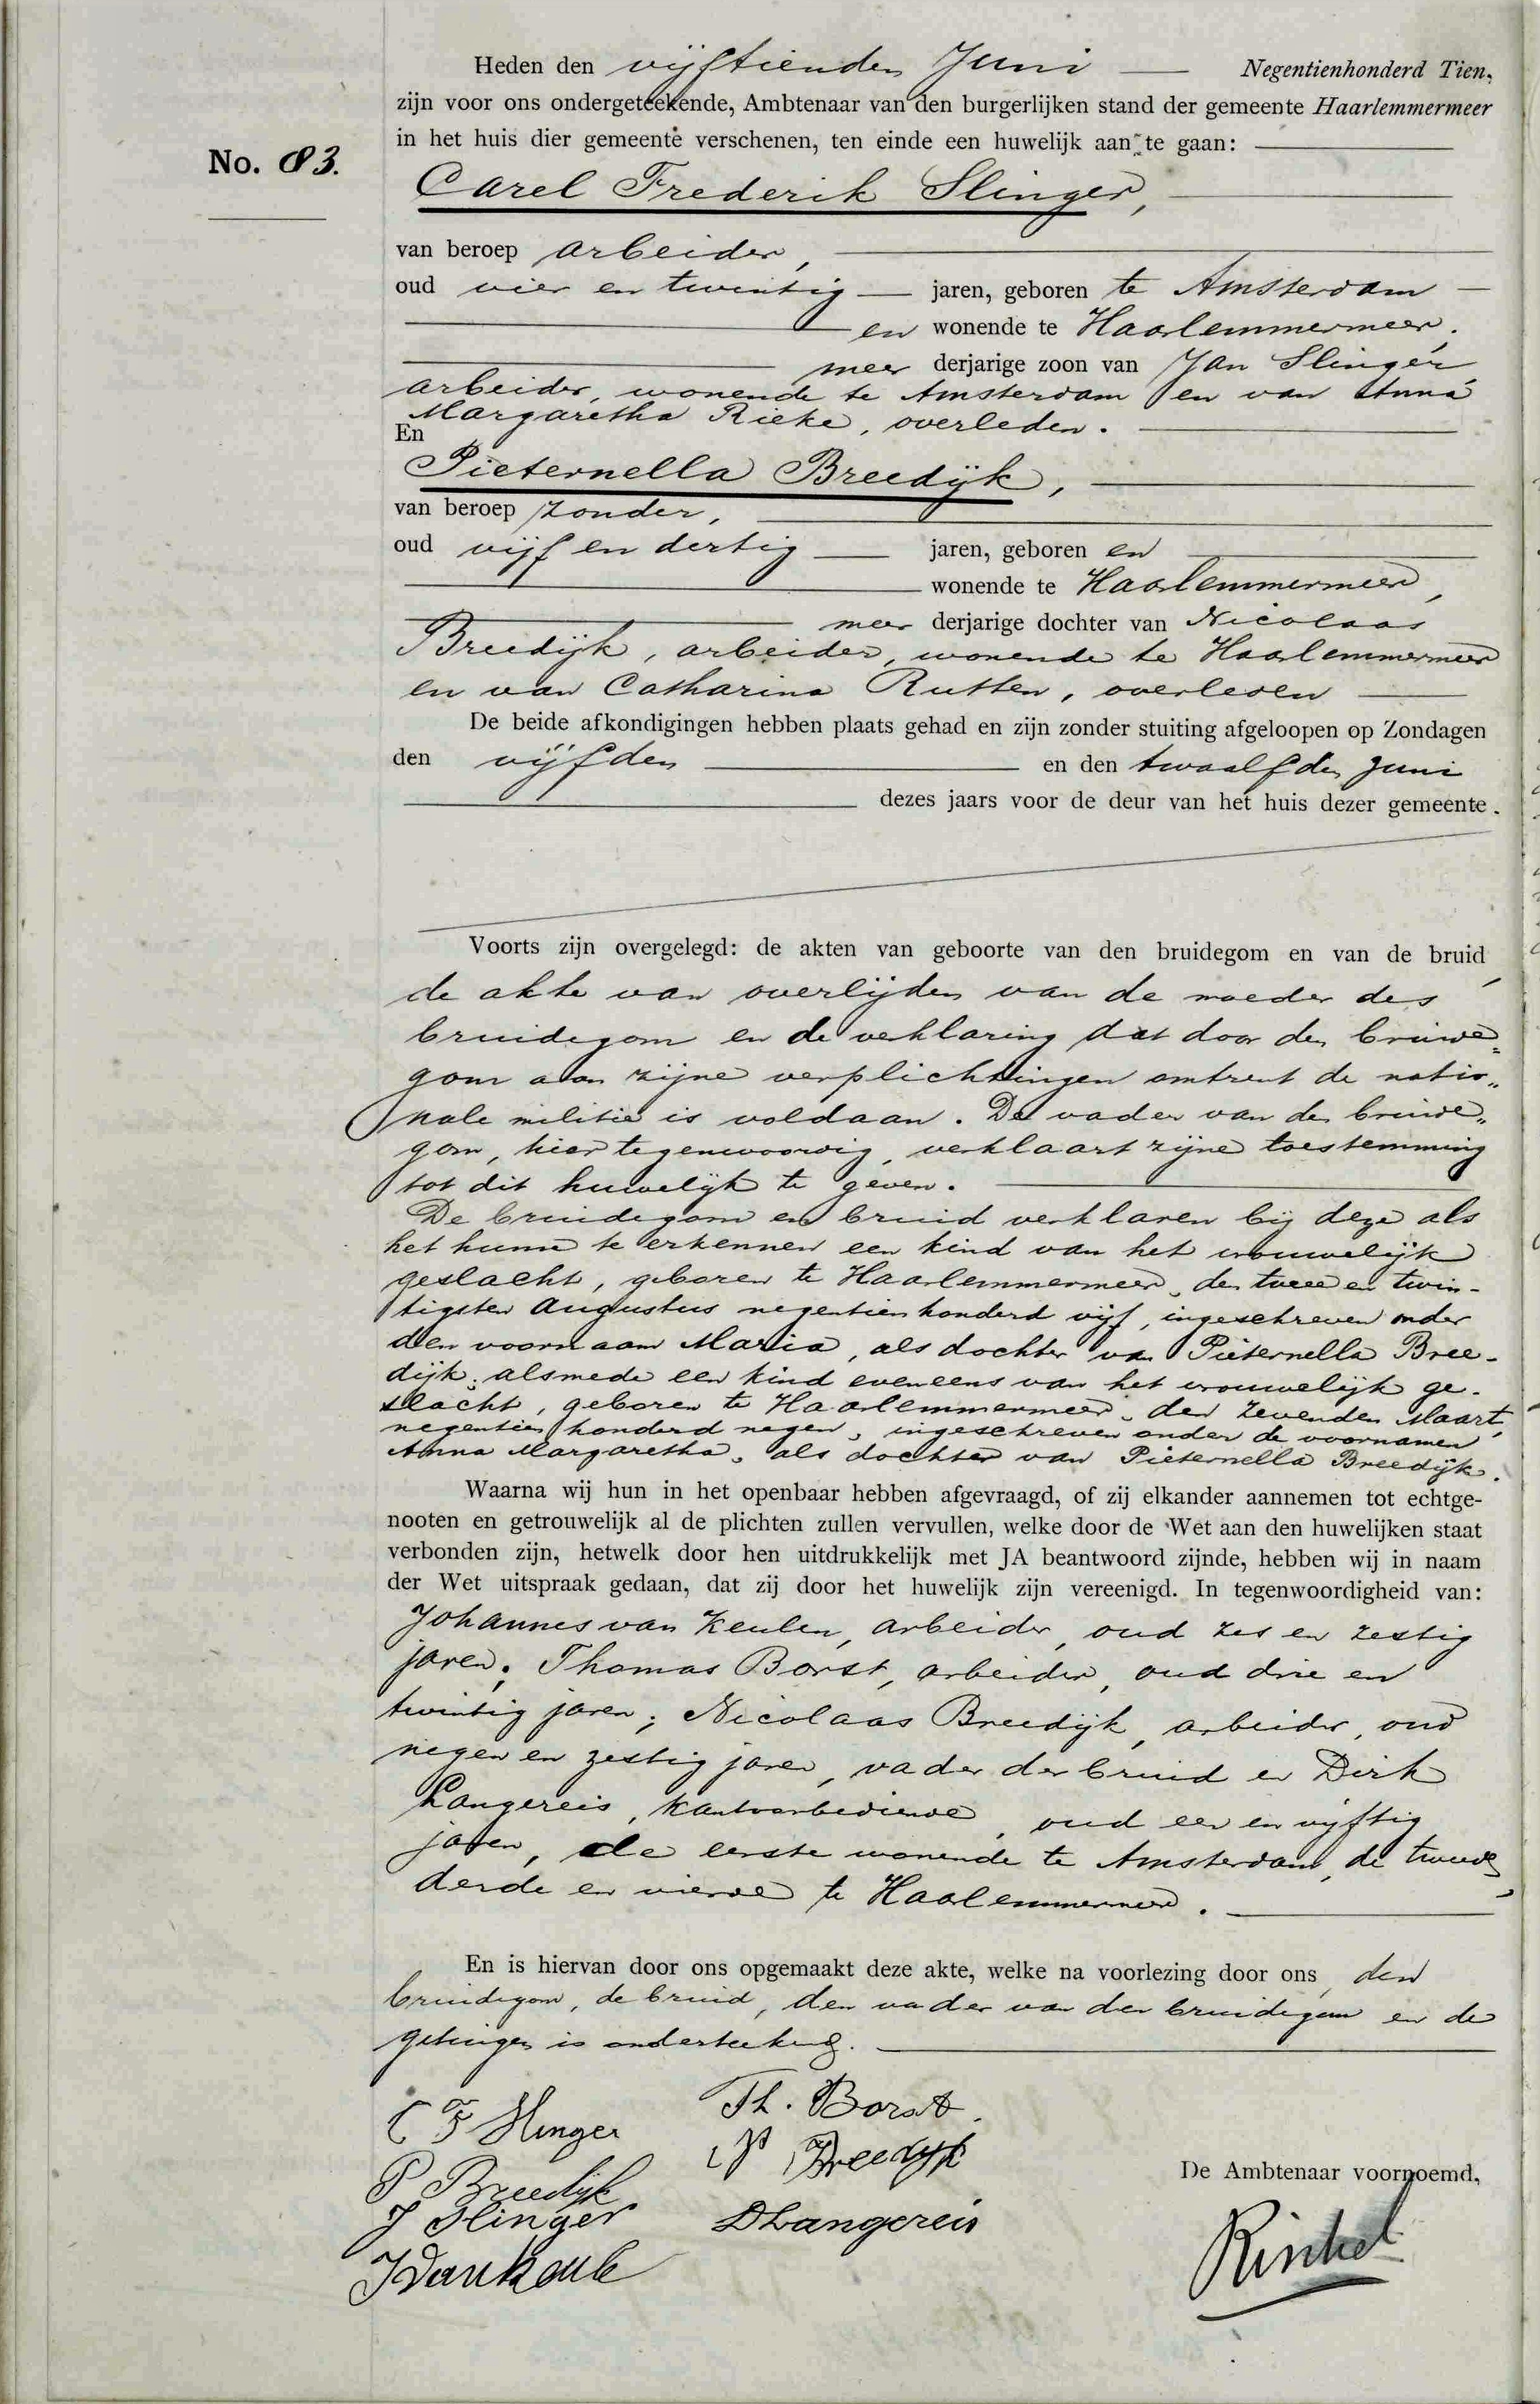 Heden den vijftienden Juni Negentienhonderd Tien,
zijn voor ons ondergeteekende, Ambtenaar van den burgerlijken stand der gemeente Haarlemmermeer
in het huis dier gemeente verschenen, ten einde een huwelijk aan te gaan:
No. 83.
Carel Frederik Slinger,
van beroep arbeider,
oud vier en twintig jaren, geboren te Amsterdam
en wonende te Haarlemmermeer,
meer derjarige zoon van Jan Slinger,
arbeider, wonende te Amsterdam en van Anna
Margaretha Rieke, overleden.
En
Pieternella Breedijk,
van beroep zonder,
oud vijf en dertig jaren, geboren en
wonende te Haarlemmermeer,
meer derjarige dochter van Nicolaas
Breedijk, arbeider, wonende te Haarlemmermeer
en van Catharina Rutten, overleden
De beide afkondigingen hebben plaats gehad en zijn zonder stuiting afgeloopen op Zondagen
den vijfden en den twaalfden Juni
dezes jaars voor de deur van het huis dezer gemeente.
Voorts zijn overgelegd: de akten van geboorte van den bruidegom en van de bruid,
de akte van overlijden van de moeder des
bruidegom en de verklaring dat door den bruide=
gom aan zijne verplichtingen omtrent de natio„
nale militie is voldaan. De vader van den bruide„
gom, hier tegenwoordig, verklaart zijne toestemming
tot dit huwelijk te geven.
De bruidegom en bruid verklaren bij deze als
het hunne te erkennen een kind van het vrouwelijk
geslacht, geboren te Haarlemmermeer, den twee en twin-
tigsten Augustus negentienhonderd vijf, ingeschreven onder
den voornaam Maria, als dochter van Pieternella Bree-
dijk; alsmede een kind eveneens van het vrouwelijk ge-
slacht, geboren te Haarlemmermeer, den zevenden Maart,
negentien honderd negen, ingeschreven onder de voornamen
Anna Margaretha, als dochter van Pieternella Breedijk.
Waarna wij hun in het openbaar hebben afgevraagd, of zij elkander aannemen tot echtge-
nooten en getrouwelijk al de plichten zullen vervullen, welke door de Wet aan den huwelijken staat
verbonden zijn, hetwelk door hen uitdrukkelijk met JA beantwoord zijnde, hebben wij in naam
der Wet uitspraak gedaan, dat zij door het huwelijk zijn vereenigd. In tegenwoordigheid van:
Johannes van Keulen, arbeider, oud zes en zestig
jaren; Thomas Borst, arbeider, oud drie en
twintig jaren; Nicolaas Breedijk, arbeider, oud
negen en zestig jaren, vader der bruid en Dirk
Langereis, kantoorbediende, oud een en vijftig
jaren, de eerste wonende te Amsterdam, de tweede,
derde en vierde te Haarlemmermeer.
En is hiervan door ons opgemaakt deze akte, welke na voorlezing door ons, den
bruidegom, de bruid, den vader van den bruidegom en de
getuigen is onderteekend.
C F Slinger Th. Borst
P Breedijk N Breedijk
J Slinger DLangereis
De Ambtenaar voornoemd,